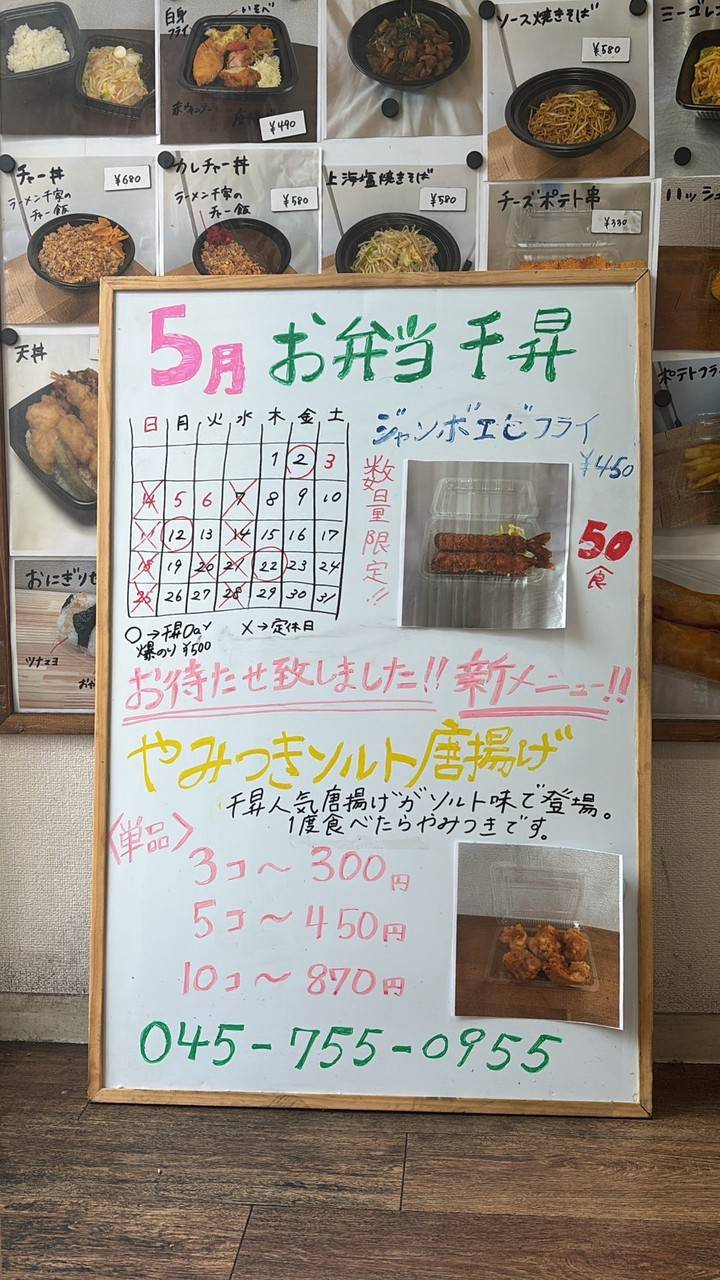 白身
フライ
いそべ
赤ウィンナー
¥490
ソース焼きそば
¥580
ミーゴレン
チャー丼
¥680
ラーメン千家の
チャー飯
カレチャー丼
ラーメン千家の
チャー飯
¥580
上海塩焼きそば
¥580
チーズポテト串
¥330
ハッシュ
天丼
ポテトフライ
おにぎりセ
ツナマヨ
おや
5月 お弁当 千昇
日 月 火 水 木 金 土
1 2 3
4 5 6 7 8 9 10
11 12 13 14 15 16 17
18 19 20 21 22 23 24
25 26 27 28 29 30 31
○→千昇Day
爆のり ¥500
×→定休日
ジャンボエビフライ
¥450
数量限定!!
50
食
お待たせ致しました!! 新メニュー!!
やみつきソルト唐揚げ
千昇人気唐揚げがソルト味で登場。
1度食べたらやみつきです。
〈単品〉
3コ〜300円
5コ〜450円
10コ〜870円
045-755-0955